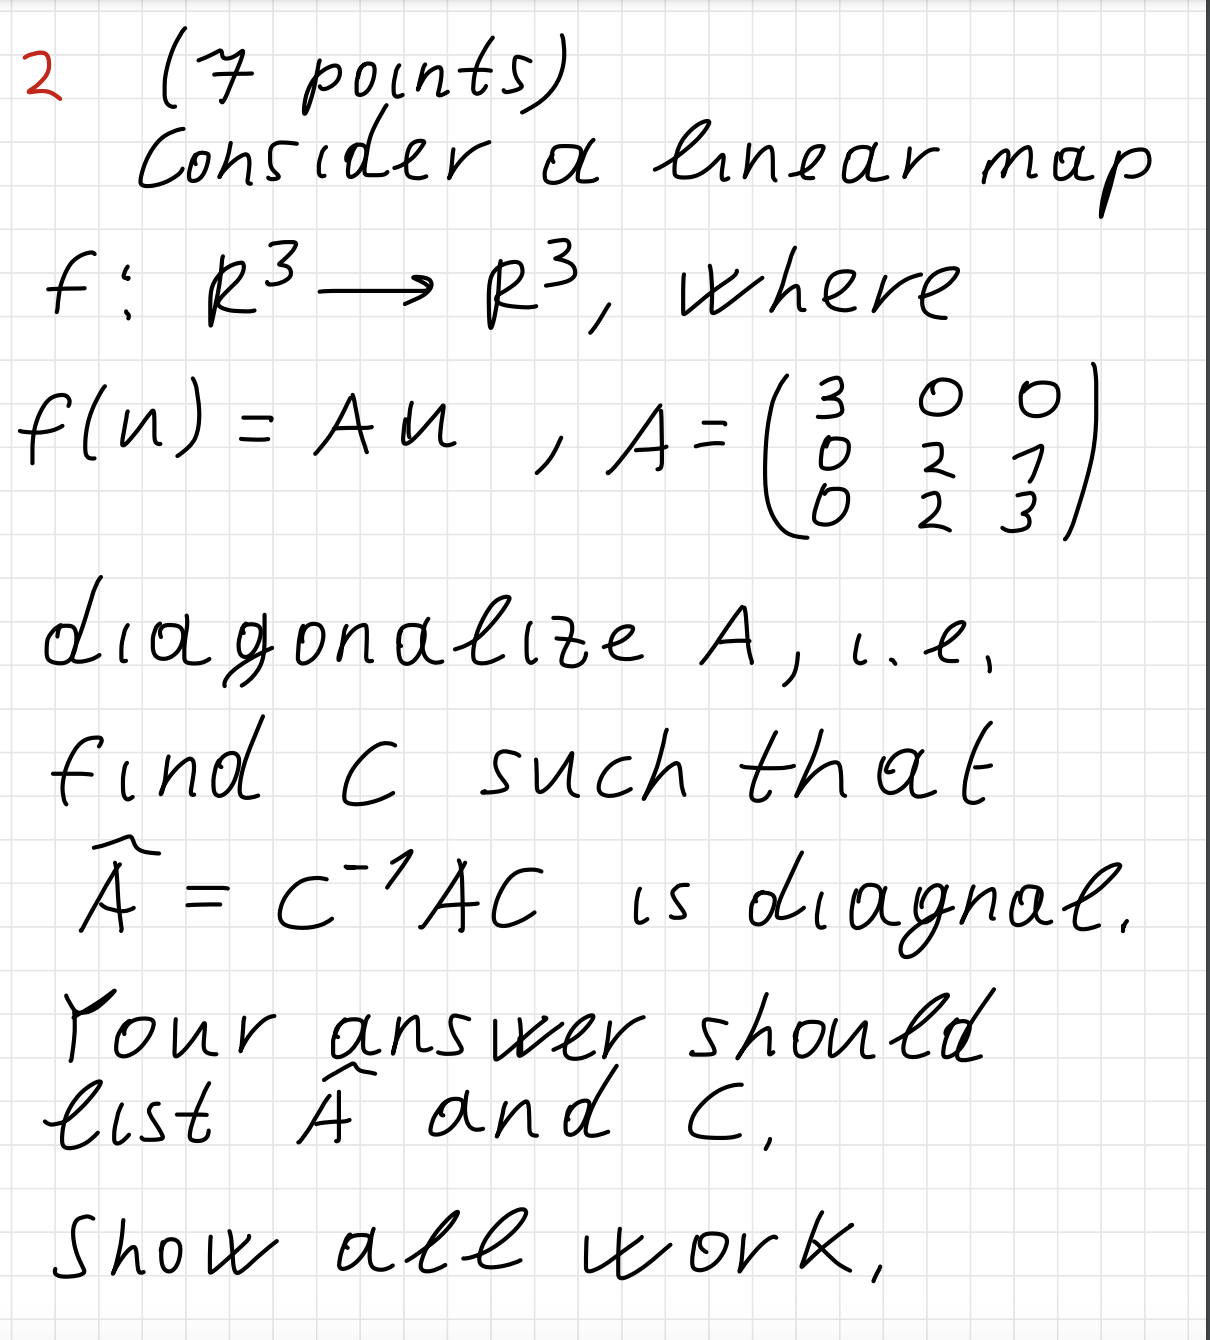 2 (7 points)
Consider a linear map
f: R³ → R³, where
f(u) = Au , A = (3 0 0
0 2 1
0 2 3)
diagonalize A, i.e.
find C such that
Â = C⁻¹AC is diagnal.
Your answer should
list Â and C.
Show all work.